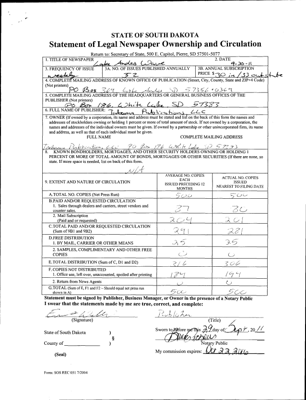 STATE OF SOUTH DAKOTA
Statement of Legal Newspaper Ownership and Circulation
Return to: Secretary of State, 500 E. Capitol, Pierre, SD 57501-5077
1. TITLE OF NEWSPAPER
Lake Andes Wave
2. DATE
9-30-11
3. FREQUENCY OF ISSUE
weekly
3A. NO. OF ISSUES PUBLISHED ANNUALLY
52
3B. ANNUAL SUBSCRIPTION
PRICE
4. COMPLETE MAILING ADDRESS OF KNOWN OFFICE OF PUBLICATION (Street, City, County, State and ZIP+4 Code)
(Not printers)
PO Box Lake Andes SD
5. COMPLETE MAILING ADDRESS OF THE HEADQUARTERS OF GENERAL BUSINESS OFFICES OF THE
PUBLISHER (Not printer)
PO Box White Lake SD 57383
6. FULL NAME OF PUBLISHER:
Publications LLC
7. OWNER (If owned by a corporation, its name and address must be stated and list on the back of this form the names and
addresses of stockholders owning or holding 1 percent or more of total amount of stock. If not owned by a corporation, the
names and addresses of the individual owners must be given. If owned by a partnership or other unincorporated firm, its name
and address, as well as that of each individual must be given.
FULL NAME
COMPLETE MAILING ADDRESS
8. KNOWN BONDHOLDERS, MORTGAGES, AND OTHER SECURITY HOLDERS OWNING OR HOLDING 1
PERCENT OR MORE OF TOTAL AMOUNT OF BONDS, MORTGAGES OR OTHER SECURITIES (If there are none, so
state. If more space is needed, list on back of this form.
9. EXTENT AND NATURE OF CIRCULATION
AVERAGE NO. COPIES
EACH
ISSUED PRECEDING 12
MONTHS
ACTUAL NO. COPIES
ISSUED
NEAREST TO FILING DATE
A. TOTAL NO. COPIES (Net Press Run)
500
500
B. PAID AND/OR REQUESTED CIRCULATION
1. Sales through dealers and carriers, street vendors and
counter sales.
2. Mail Subscription
(Paid and or requested)
C. TOTAL PAID AND/OR REQUESTED CIRCULATION
(Sum of 9B1 and 9B2)
D. FREE DISTRIBUTION
1. BY MAIL, CARRIER OR OTHER MEANS
25
2. SAMPLES, COMPLIMENTARY AND OTHER FREE
COPIES
0
0
E. TOTAL DISTRIBUTION (Sum of C, D1 and D2)
F. COPIES NOT DISTRIBUTED
1. Office use, left over, unaccounted, spoiled after printing
2. Return from News Agents
0
0
G. TOTAL (Sum of E, F1 and F2 - Should equal net press run
shown in A)
500
500
Statement must be signed by Publisher, Business Manager, or Owner in the presence of a Notary Public
I swear that the statements made by me are true, correct, and complete:
Publisher
(Signature)
(Title)
State of South Dakota )
Sworn to before me this 29 day of Sept, 2011
County of )
Notary Public
(Seal)
My commission expires:
Form: SOS REC 051 7/2004